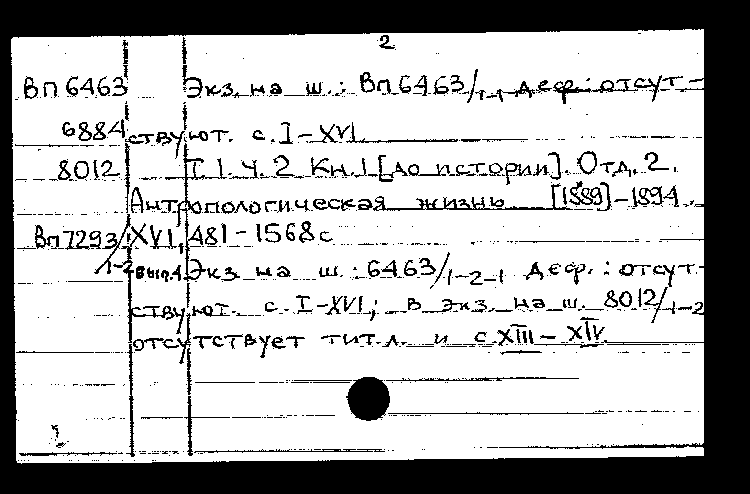 2
Вп 6463 Экз. на ш.: Вп 6463/1-1 деф.: отсут-
6884 ствуют. с. I-XVI.
8012 Т. 1. Ч. 2 Кн. 1 [до истории]. Отд. 2.
Антропологическая жизнь [1889]-1894.
Вп 7293/1-2 XVI, 481-1568 с
вып. 1. Экз. на ш.: 6463/1-2-1 деф.: отсут-
ствуют. с. I-XVI; в экз. на ш. 8012/1-2
отсутствует тит. л. и с XIII-XIV.